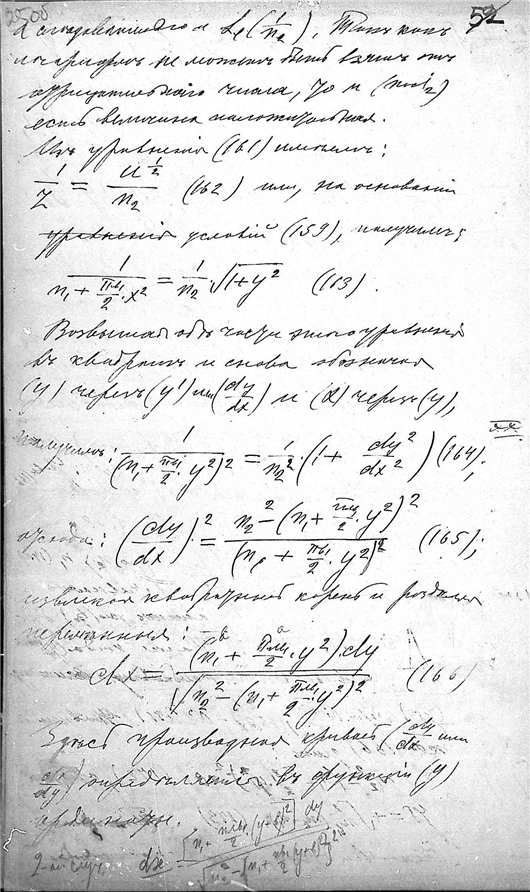 52
а следовательно и Lg (1/n₂). Такъ какъ
логарифмъ не можетъ быть взятъ отъ
отрицательнаго числа, то и
есть величина положительная.
Изъ уравненія (161) имѣемъ:
1/Z = U^(1/2)/n₂ (162) или, на основаніи
уравненія условій (159), получимъ:
1/(n₁ + пм₁/2 · x²) = 1/n₂ · √(1+y²) (163).
Возвышая обѣ части этого уравненія
въ квадратъ и снова обозначая
(y) черезъ (y') или (dy/dx) и (x) черезъ (y),
получимъ: 1/(n₁ + пм₁/2 · y²)² = 1/n₂² · (1 + dy²/dx²) (164);
отсюда: (dy/dx)² = (n₂² − (n₁ + пм₁/2 · y²)²)/(n₁ + пм₁/2 · y²)² (165);
извлекая квадратный корень и раздѣляя
перемѣнныя:
dx = (n₁ + пм₁/2 · y²)·dy / √(n₂² − (n₁ + пм₁/2 · y²)²) (166)
Здѣсь производная кривой (dy/dx или
dx/dy) опредѣляется въ функціи (y)
ординаты.